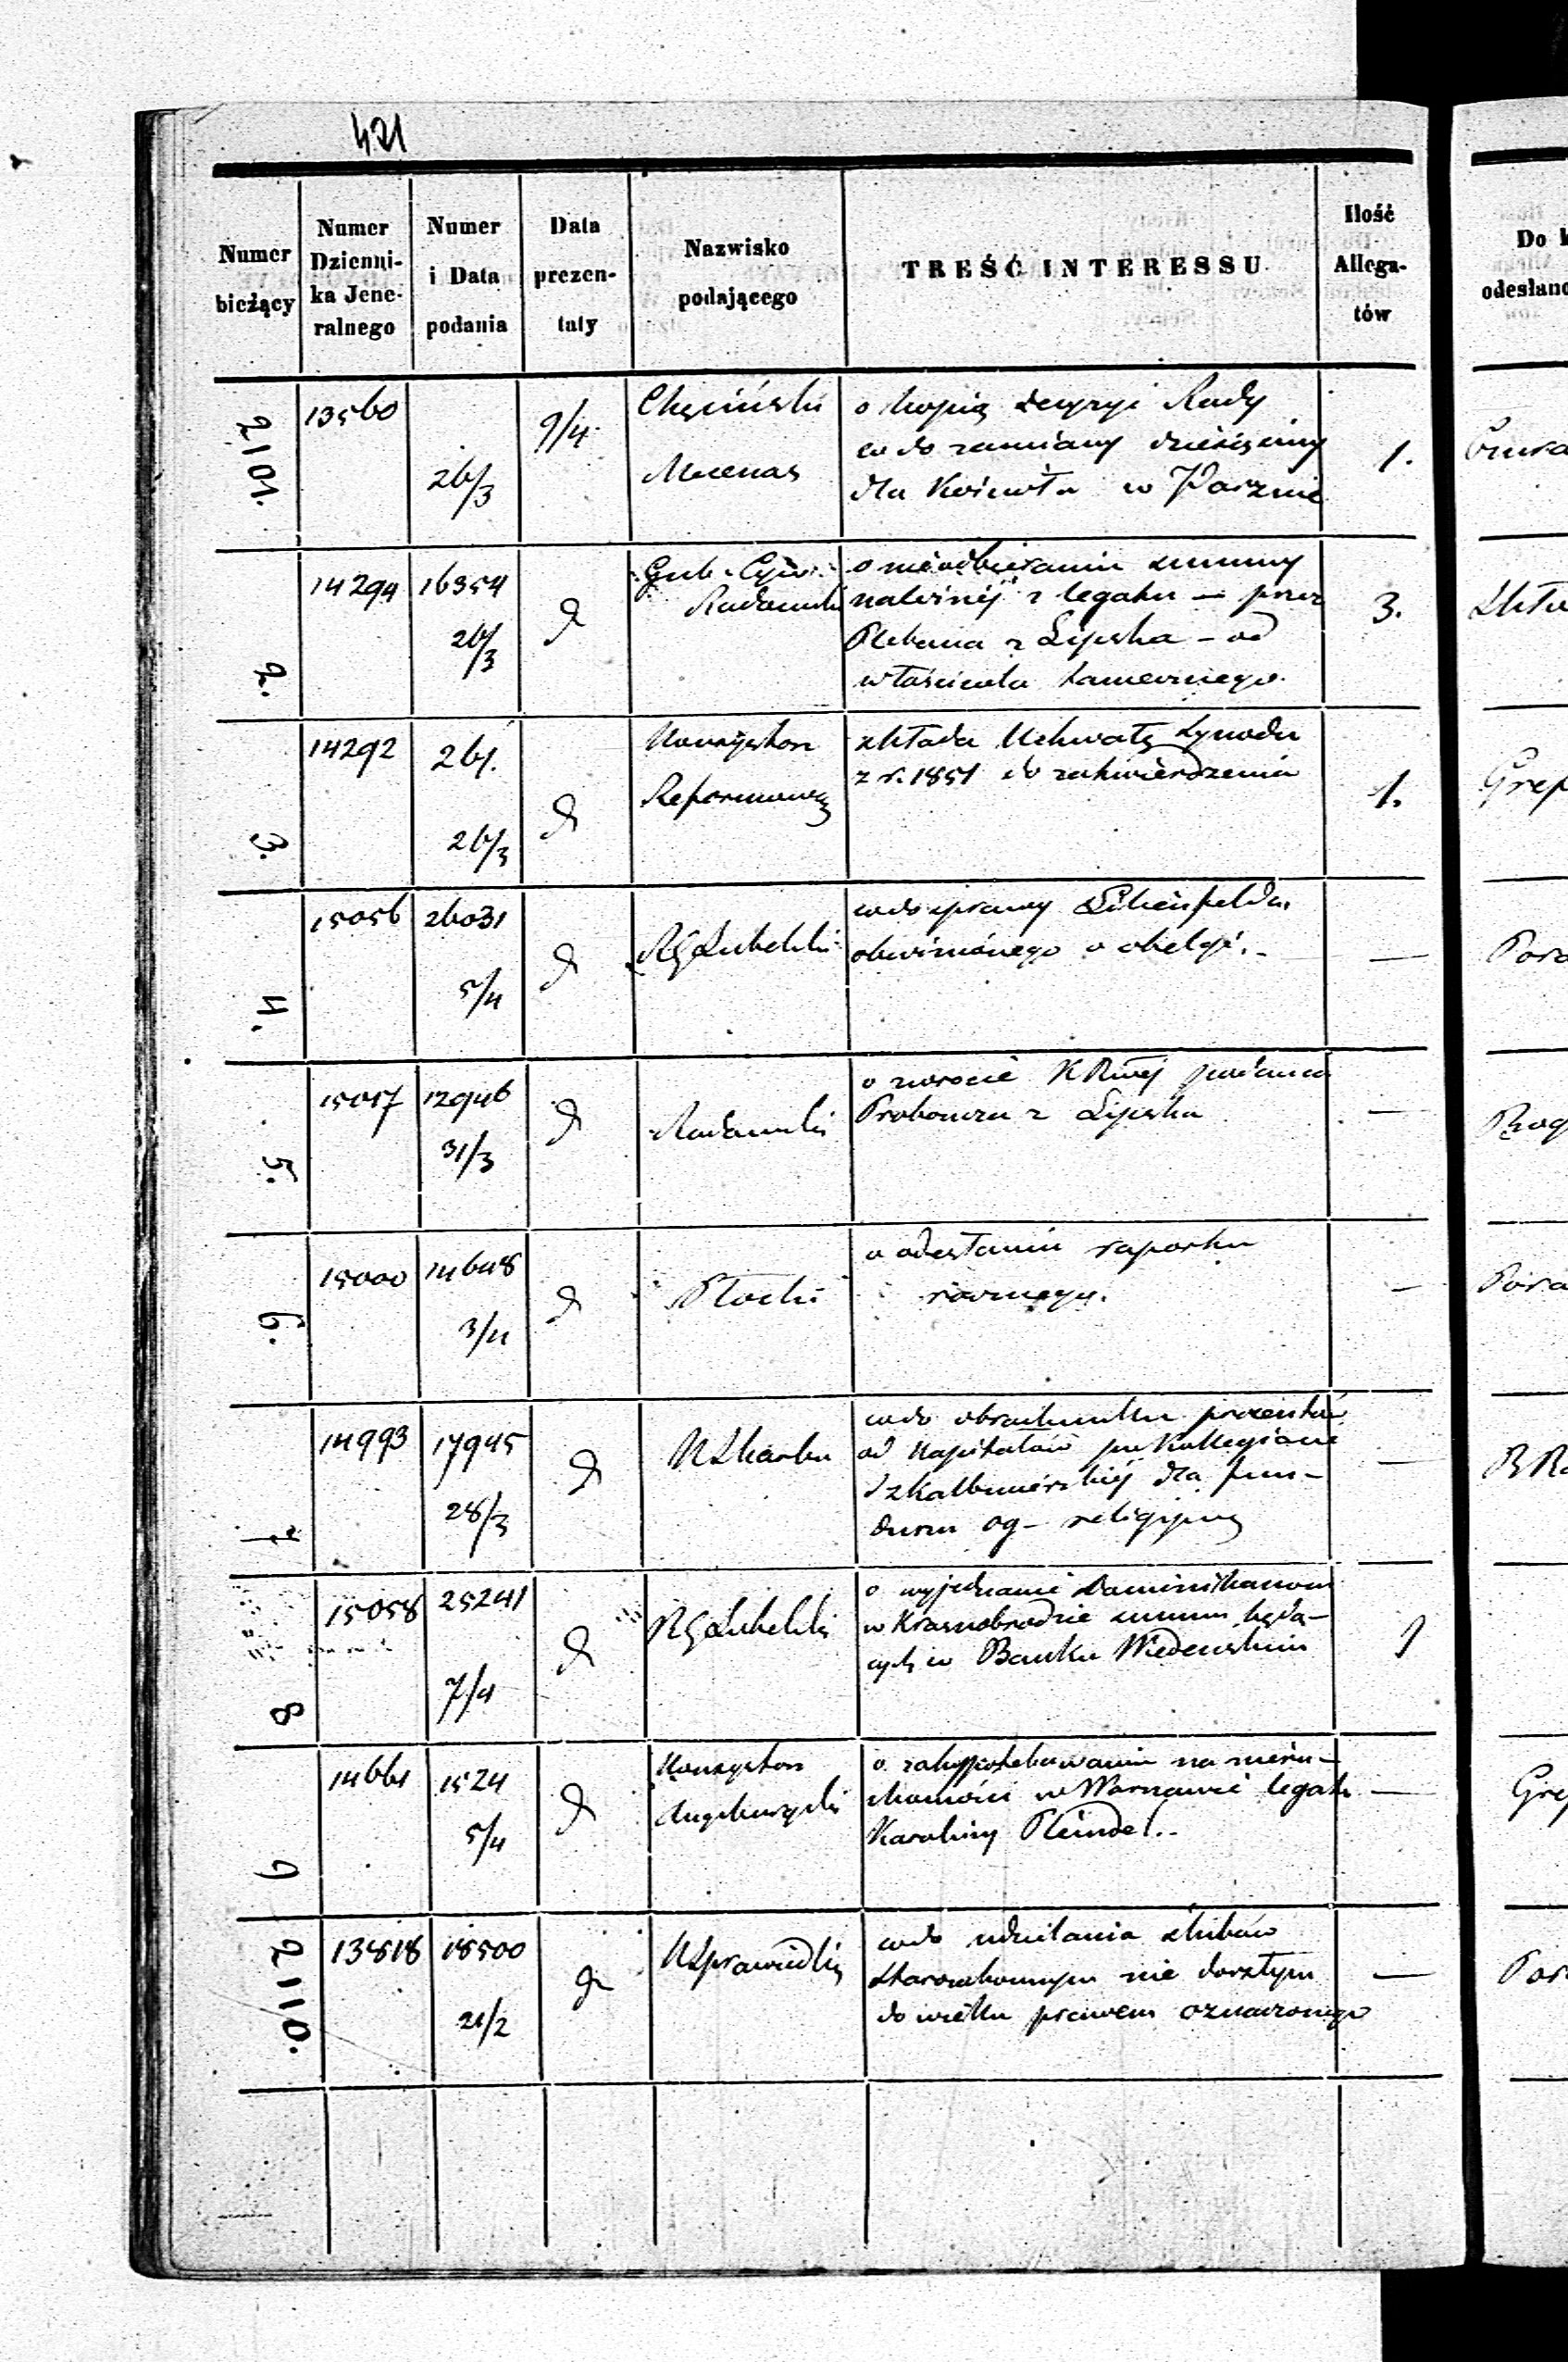 421
Numer bieżący
Numer Dzienni-ka Jene-ralnego
Numer i Data podania
Data prezen-taty
Nazwisko podającego
TREŚĆ INTERESSU
Ilość Allega-tów
Do
odesłano
2101.
13560
26/3
9/4
Chęciński
Mecenas
o kopię decyzyi Rady
co do zamiany dziesięciny
dla Kościoła w
1.
2.
14294
16354
26/3
Gub. Cyw.
Radomski
o nieodbieraniu summy
należnéj z legatu — przez
Plebana z Lipska – od
właściciela
3.
3.
14292
261.
26/3
Konsystorz
Reformowany
składa Uchwałę Synodu
z r. 1851 do zatwierdzenia
1.
4.
15056
26031
5/4
RG Lubelski
co do sprawy Lilienfelda
obwinionego o obelgi.
—
5.
15017
12946
31/3
Radomski
o zwrocie podania
Proboszcza z Lipska
—
6.
15000
14648
3/4
Płocki
o odesłaniu raportu
—
7
14993
17945
28/3
K Skarbu
co do obrachunku procentów
od Kapitałów po Kollegiacie
Szkalbmierskiéj dla fun-
duszu og– religijny
—
8
15058
25241
7/4
RG Lubelski
o wyjednanie Dominikanom
w Krasnobrodzie summ będą-
cych w Banku Wiedeńskim
1
9
14661
1524
5/4
Konsystorz
Augsburgski
o zahypotekowaniu na nieru-
chomości w Warszawie legatu
Karoliny Pleindel.
—
2110.
13818
18500
21/2
K Sprawiedliw
co do udzielania ślubów
Starozakonnym nie doszłym
do wieku prawem oznaczonego
—